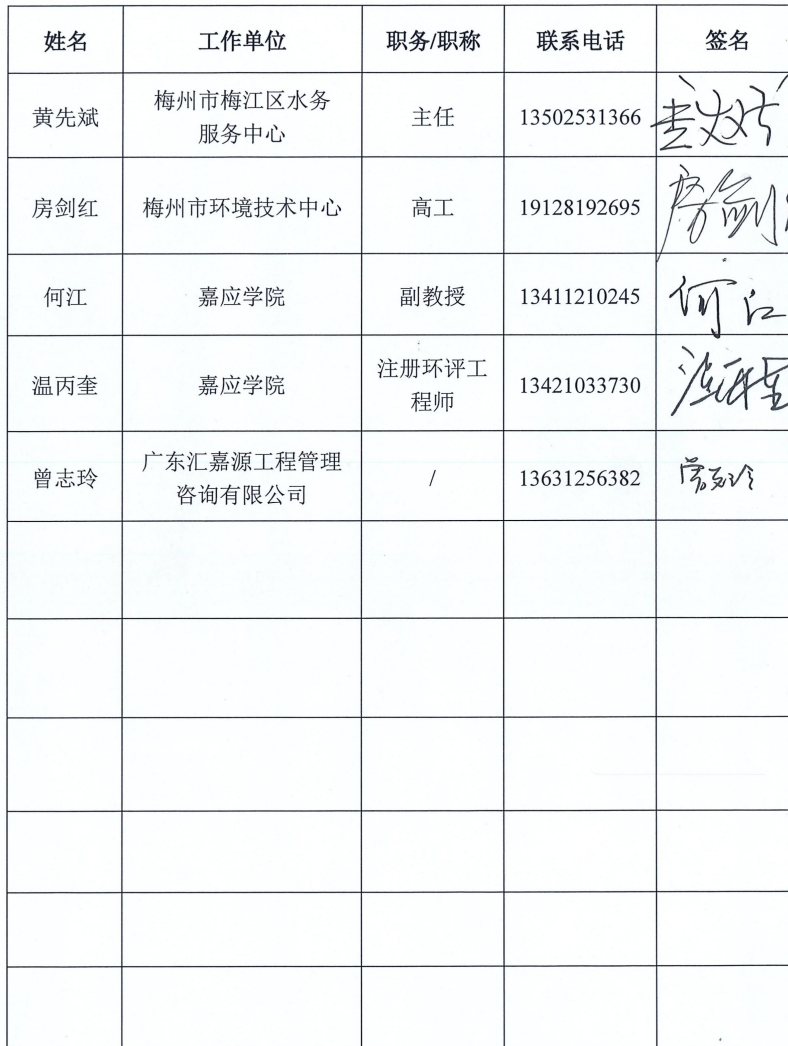 姓名 工作单位 职务/职称 联系电话 签名
黄先斌 梅州市梅江区水务 主任 13502531366
服务中心
房剑红 梅州市环境技术中心 高工 19128192695 房剑
何江 嘉应学院 副教授 13411210245 何江
温丙奎 嘉应学院 注册环评工 13421033730
程师
曾志玲 广东汇嘉源工程管理 / 13631256382 曾志玲
咨询有限公司